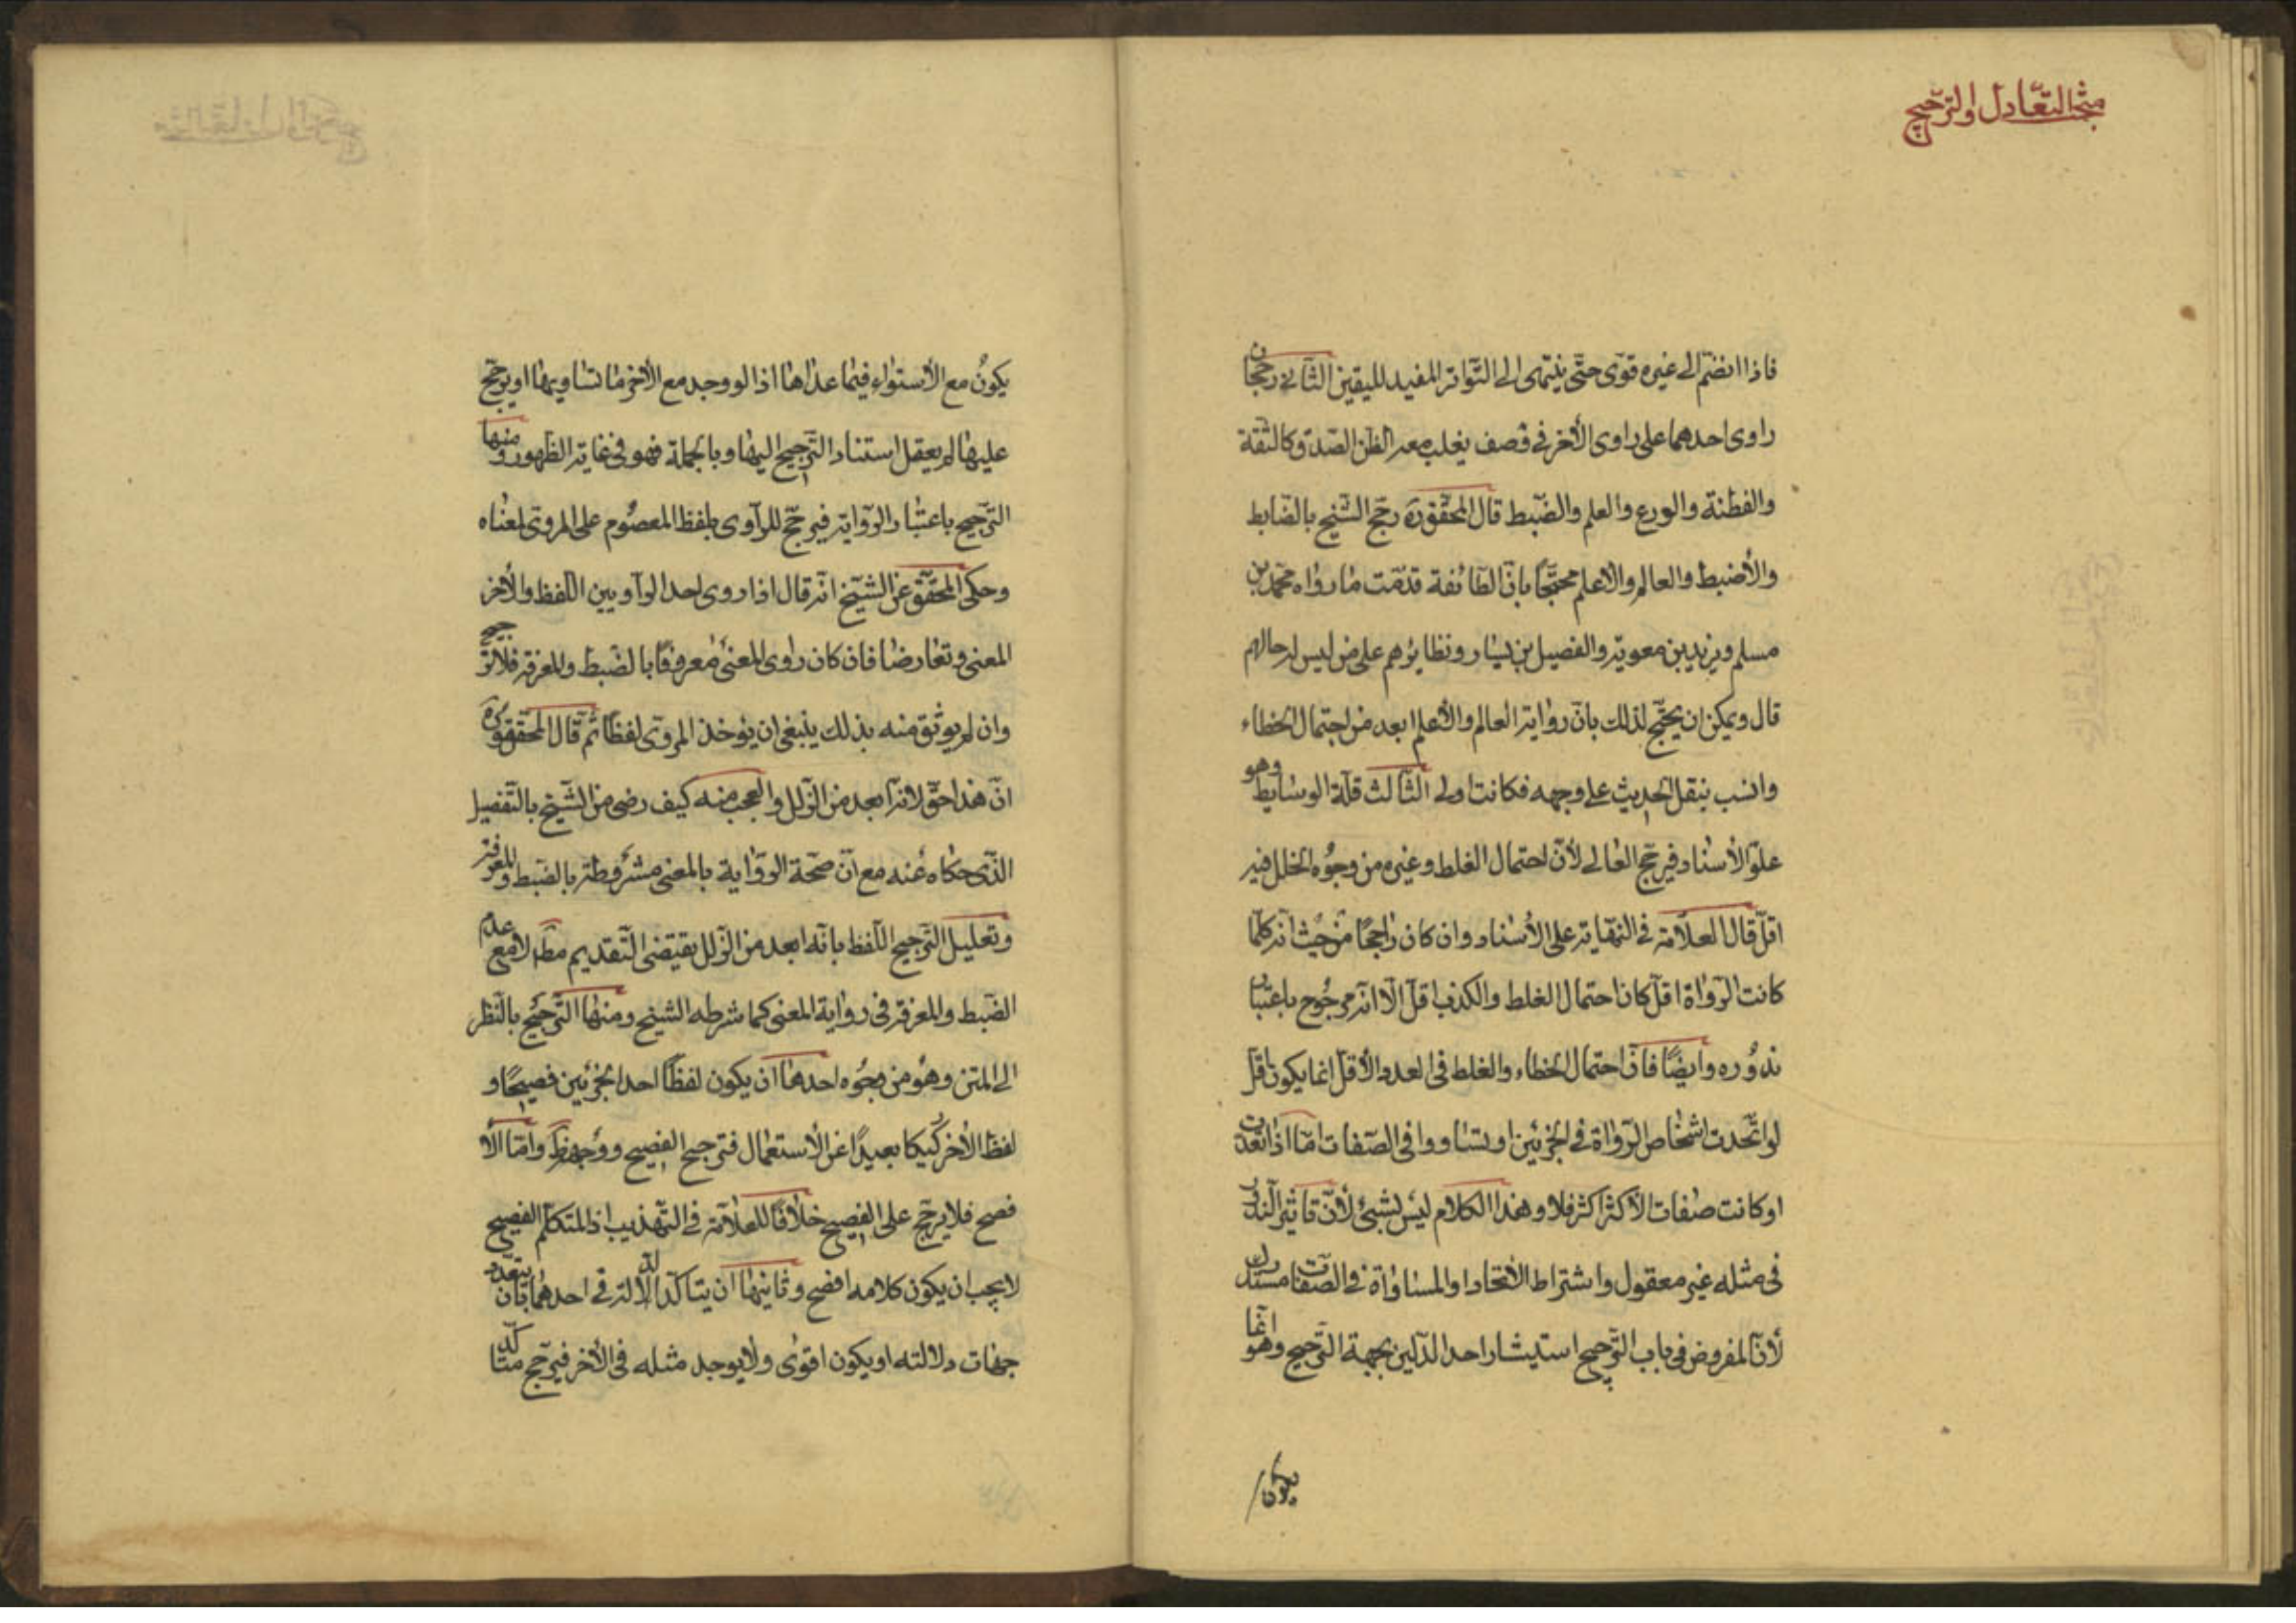 مبحث التعادل والترجيح
فاذا انضم الى غيره قوى حتى ينتهى الى التواتر المفيد لليقين الثانى رجحان
راوى احدهما على راوى الأخر فى وصف يغلب معه الظن الصدق كالثقة
والفطنة والورع والعلم والضبط قال المحقق ره رجح الشيخ بالضابط
والأضبط والعالم والأعلم محتجا بانّ الطائفة قدمت ما رواه محمد بن
مسلم ويزيد بن معوية والفضيل بن يسار ونظائرهم على من ليس له حالهم
قال ويمكن ان يحتج لذلك بانّ رواية العالم والأعلم ابعد من احتمال الخطاء
وانسب بنقل الحديث على وجهه فكانت اولى الثالث قلة الوسايط وهو
علوّ الأسناد فيرجح العالى لأنّ احتمال الغلط وغيره من وجوه الخلل فيه
اقل قال العلامة فى النهاية على الأسناد وان كان راجحا من حيث انه كلما
كانت الرواة اقل كان احتمال الغلط والكذب اقل الّا انه مرجوح باعتبار
ندوره وايضًا فانّ احتمال الخطاء والغلط فى العدد الأقل انما يكون اقل
لو اتحدت اشخاص الرواة فى الخبرين او تساووا فى الصفات امّا اذا تعددت
او كانت صفات الأكثر اكثر فلا وهذا الكلام ليس بشىء لأنّ تاثير الندور
فى مثله غير معقول واشتراط الأتحاد او المساواة فى الصفات مستدرك
لأنّ المفروض فى باب الترجيح استيثار احد الدليلين بجهة الترجيح وهو انما
يكون
يكون مع الأستواء فيما عداها اذا لو وجد مع الأخر ما تساويها او يرجح
عليها لم يعقل استناد الترجيح اليها وبالجملة فهو فى غاية الظهور ومنها
الترجيح باعتبار الرواية فيرجح للراوى بلفظ المعصوم على المروى لمعناه
وحكى المحقق عن الشيخ انه قال اذا روى احد الراويين اللفظ والأخر
المعنى وتعارضا فان كان راوى المعنى معروفًا بالضبط والمعرفة فلا ترجيح
وان لم يوثق منه بذلك ينبغى ان يؤخذ المروى لفظًا ثم قال المحقق ره
انّ هذا حق لأنه ابعد من الزلل والعجب منه كيف رضى من الشيخ بالتفصيل
الذى حكاه عنه مع انّ صحة الرواية بالمعنى مشروطة بالضبط والمعرفة
وتعليل الترجيح اللفظ بانه ابعد من الزلل يقتضى التقديم مط لا مع عدم
الضبط والمعرفة فى رواية المعنى كما شرطه الشيخ ومنها الترجيح بالنظر
الى المتن وهو من وجوه احدها ان يكون لفظًا احد الخبرين فصيحًا و
لفظ الأخر ركيكا بعيدًا عن الأستعمال فترجيح الفصيح ووجهه ظ وامّا الأ
فصح فلا يرجح على الفصيح خلافًا للعلامة فى التهذيب اذ المتكلم الفصيح
لا يجب ان يكون كلامه افصح وثانيها ان يتاكد الدلالة فى احدهما بان يتعدد
جهات دلالته او يكون اقوى ولا يوجد مثله فى الأخر فيرجح متاكد